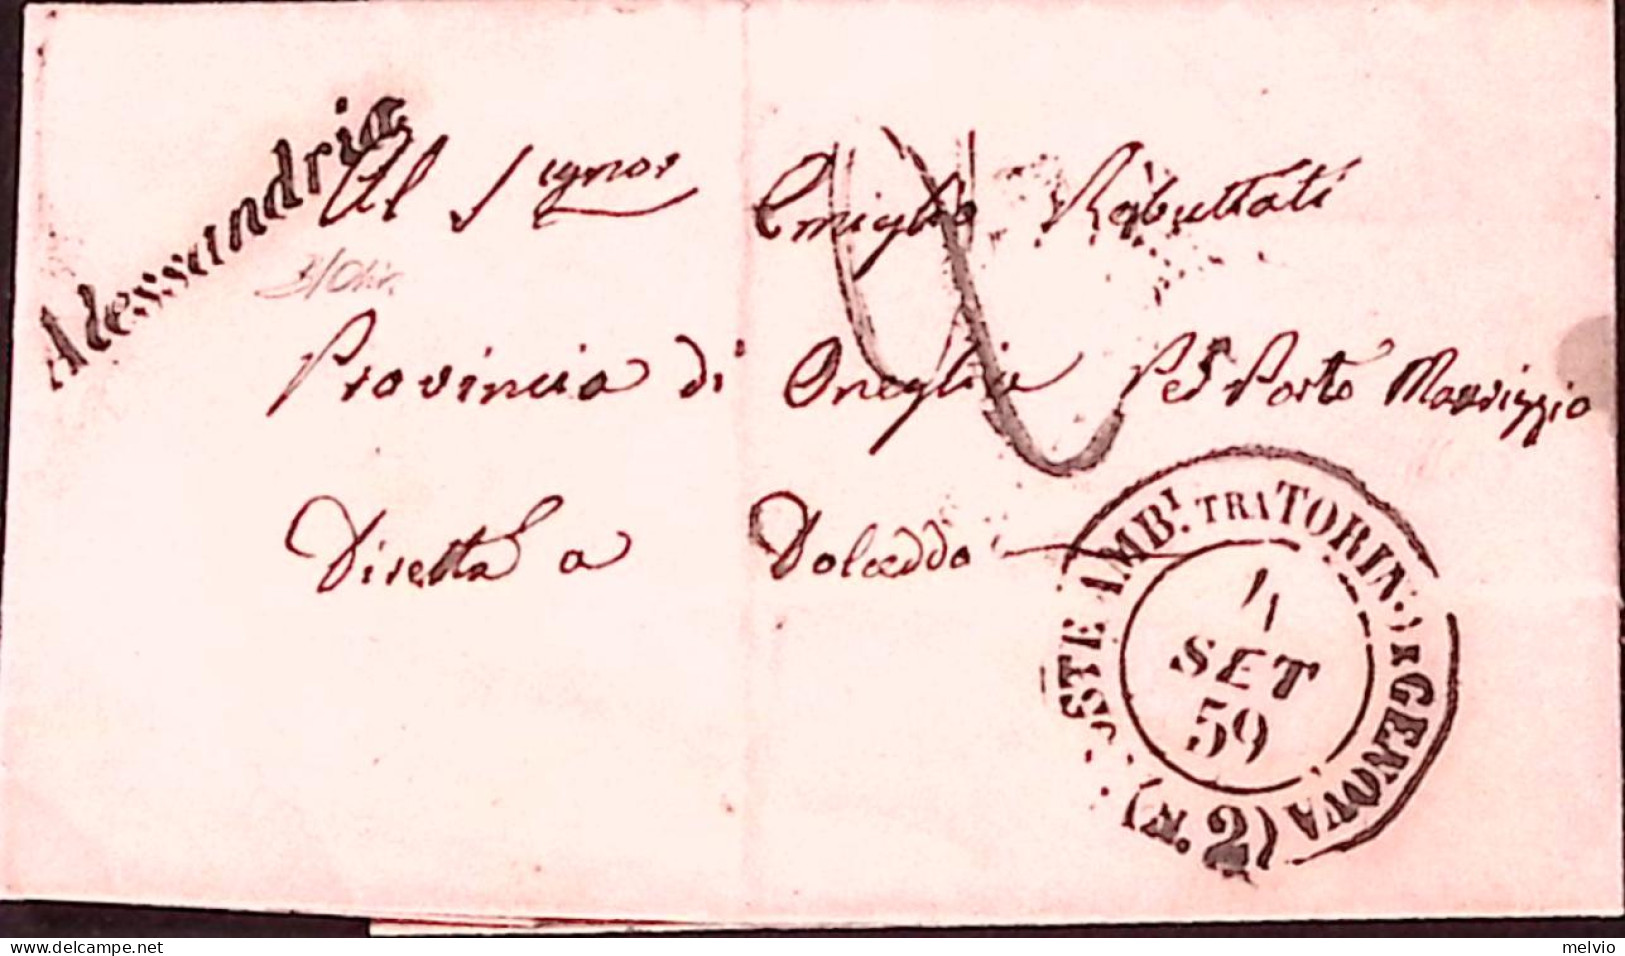 Alessandria
Al Signor Emiglio Rabuttati
Provincia di Oneglia Per Porto Maurizzio
Diretta a Dolceddo
POSTE AMB.I TRA TORINO E GENOVA (N.2)
4
SET
59
melvio